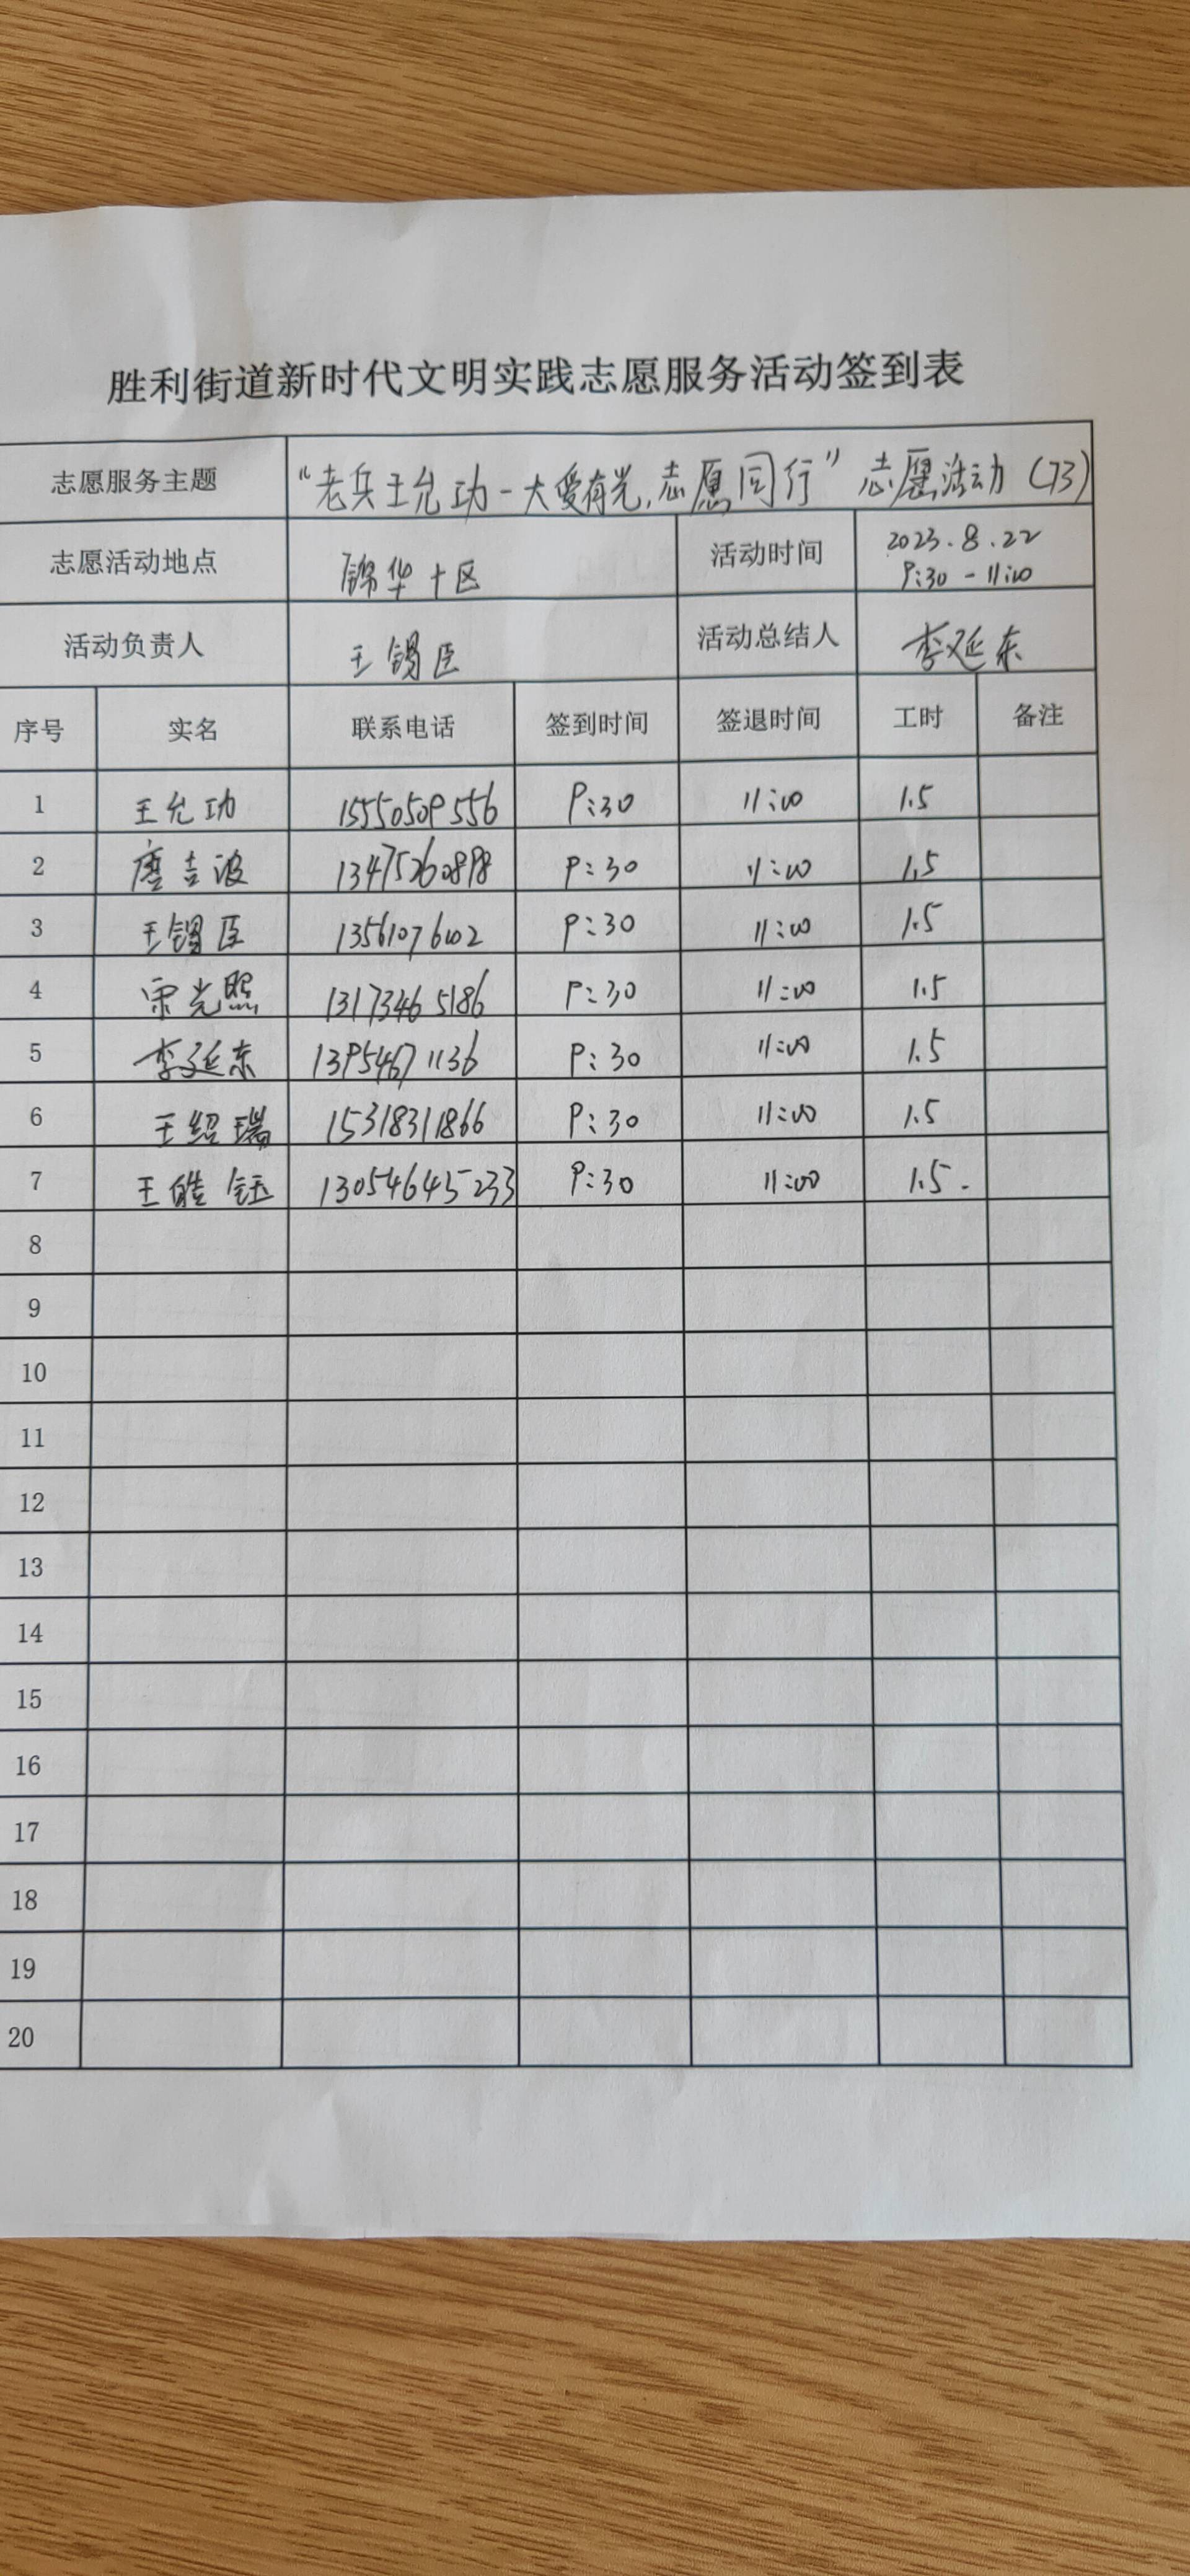 胜利街道新时代文明实践志愿服务活动签到表
志愿服务主题 “老兵王允功-大爱有光,志愿同行”志愿活动(73)
志愿活动地点 锦华十区 活动时间 2023.8.22
9:30-11:00
活动负责人 王锡臣 活动总结人 李延东
序号 实名 联系电话 签到时间 签退时间 工时 备注
1 王允功 15550509556 9:30 11:00 1.5
2 唐吉波 13475260898 9:30 11:00 1.5
3 王锡臣 13561076602 9:30 11:00 1.5
4 宋光照 13173465186 9:30 11:00 1.5
5 李延东 13954671136 9:30 11:00 1.5
6 王绍瑞 15318311866 9:30 11:00 1.5
7 王皓钰 13054645233 9:30 11:00 1.5
8
9
10
11
12
13
14
15
16
17
18
19
20